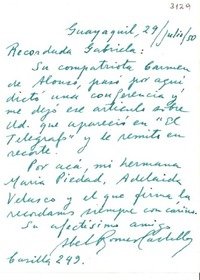 3129
Guayaquil, 29/julio/50
Recordada Gabriela:
Su compatriota Carmen
de Alonso, pasó por aquí
dictó una conferencia y
me dejó ese artículo sobre
Ud. que apareció en "El
Telégrafo" y le remito en
recorte.
Por acá, mi hermana
María Piedad, Adelaida
Velasco y el que firma la
recordamos siempre con cariño.
Su afectísimo amigo
Abel Romeo Castillo
Casilla 249.